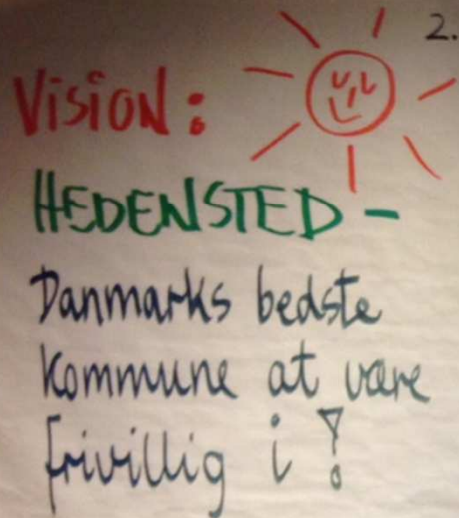 2.
Vision:
HEDENSTED -
Danmarks bedste
kommune at være
frivillig i!